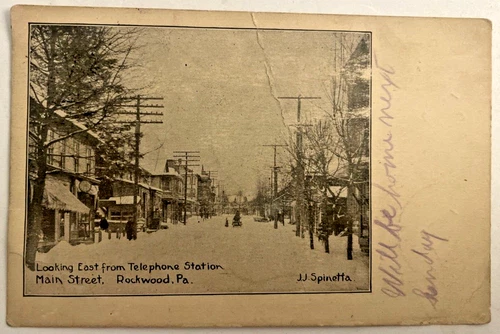 Looking East from Telephone Station
Main Street, Rockwood, Pa.
J.J. Spinetta
Will be home next
Sunday